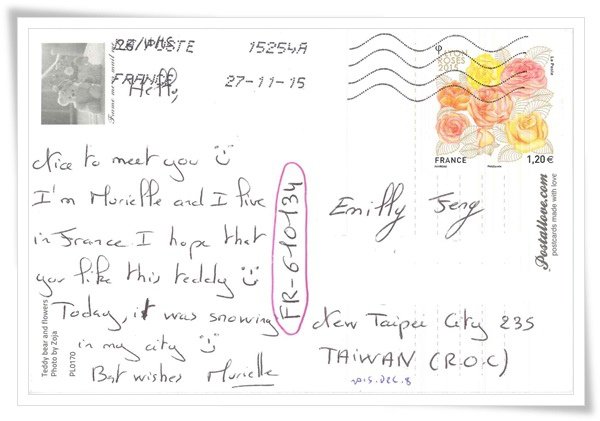 LA POSTE 15254A
FRANCE 27-11-15
Hello,
Nice to meet you
I'm Murielle and I live
in France. I hope that
you like this teddy
Today, it was snowing
in my city
Best wishes Murielle
Teddy bear and flowers
Photo by Zoja
PL0170
FR-610134
LYON
ROSES 2015
La Poste
FRANCE 1,20 €
Postallove.com
postcards made with love
Emilly Feng
New Taipei City 235
TAIWAN (R.O.C)
2015.DEC.8